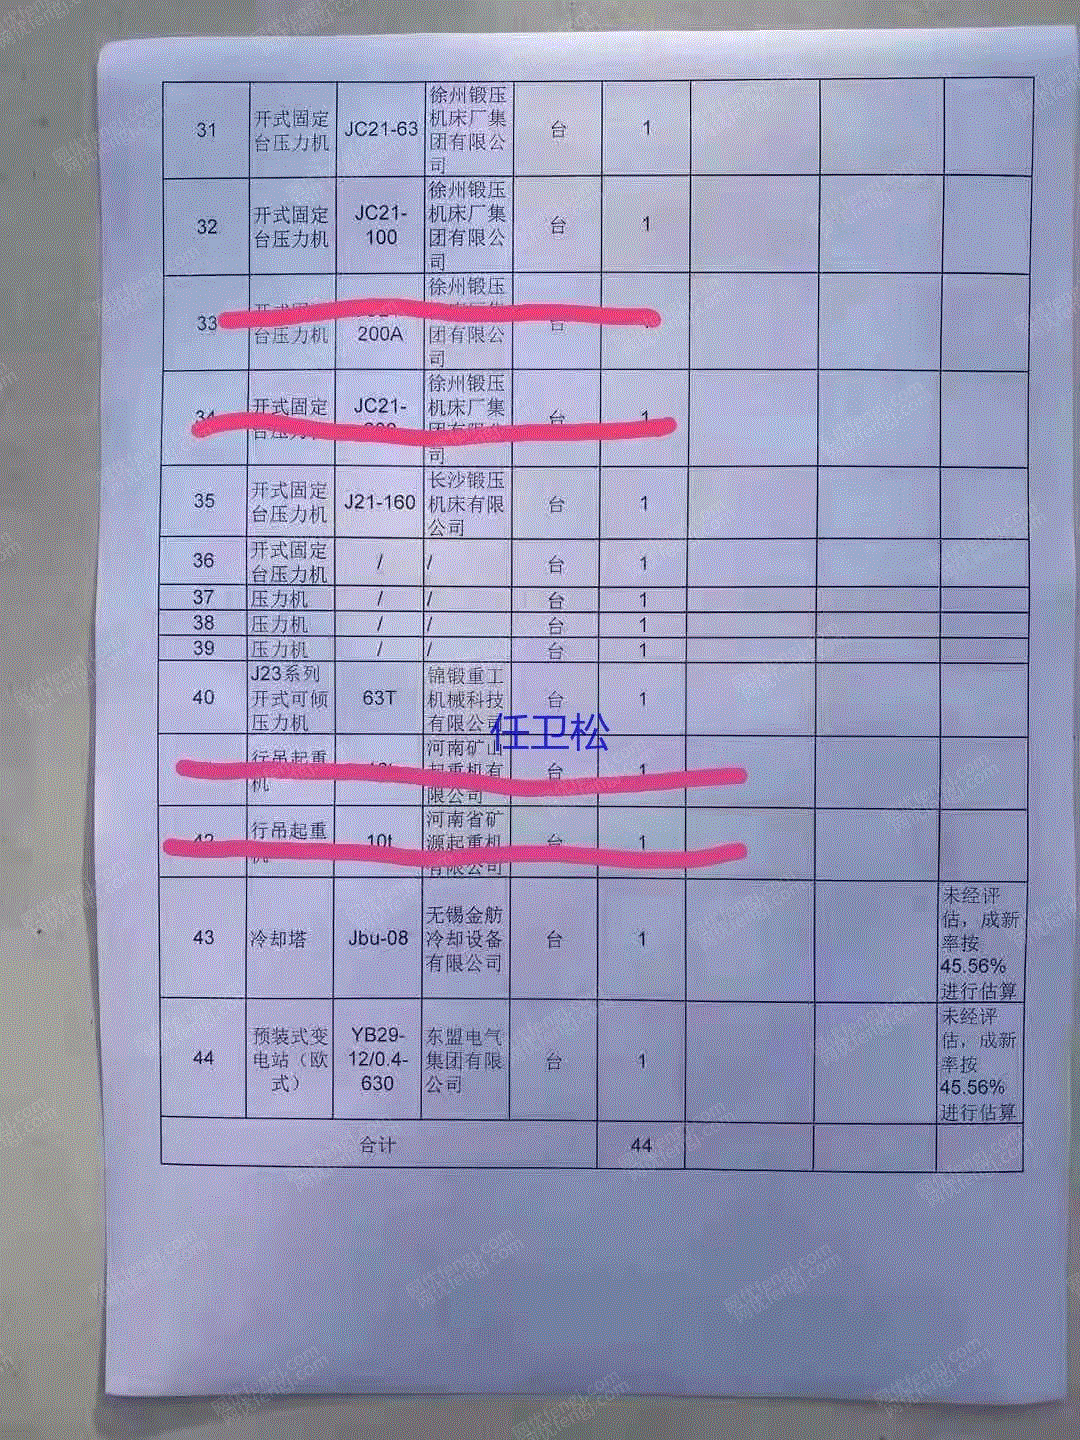 31 开式固定台压力机 JC21-63 徐州锻压机床厂集团有限公司 台 1
32 开式固定台压力机 JC21-100 徐州锻压机床厂集团有限公司 台 1
33 台压力机 200A 徐州锻压 团有限公司 台
34 开式固定台压力机 JC21- 徐州锻压机床厂集团有限公司 台 1
35 开式固定台压力机 J21-160 长沙锻压机床有限公司 台 1
36 开式固定台压力机 / / 台 1
37 压力机 / / 台 1
38 压力机 / / 台 1
39 压力机 / / 台 1
40 J23系列开式可倾压力机 63T 锦锻重工机械科技有限公司 台 1
任卫松
行吊起重机 河南矿山起重机有限公司 台 1
42 行吊起重机 10t 河南省矿源起重机有限公司 台 1
43 冷却塔 Jbu-08 无锡金舫冷却设备有限公司 台 1 未经评估，成新率按45.56%进行估算
44 预装式变电站（欧式） YB29-12/0.4-630 东盟电气集团有限公司 台 1 未经评估，成新率按45.56%进行估算
合计 44